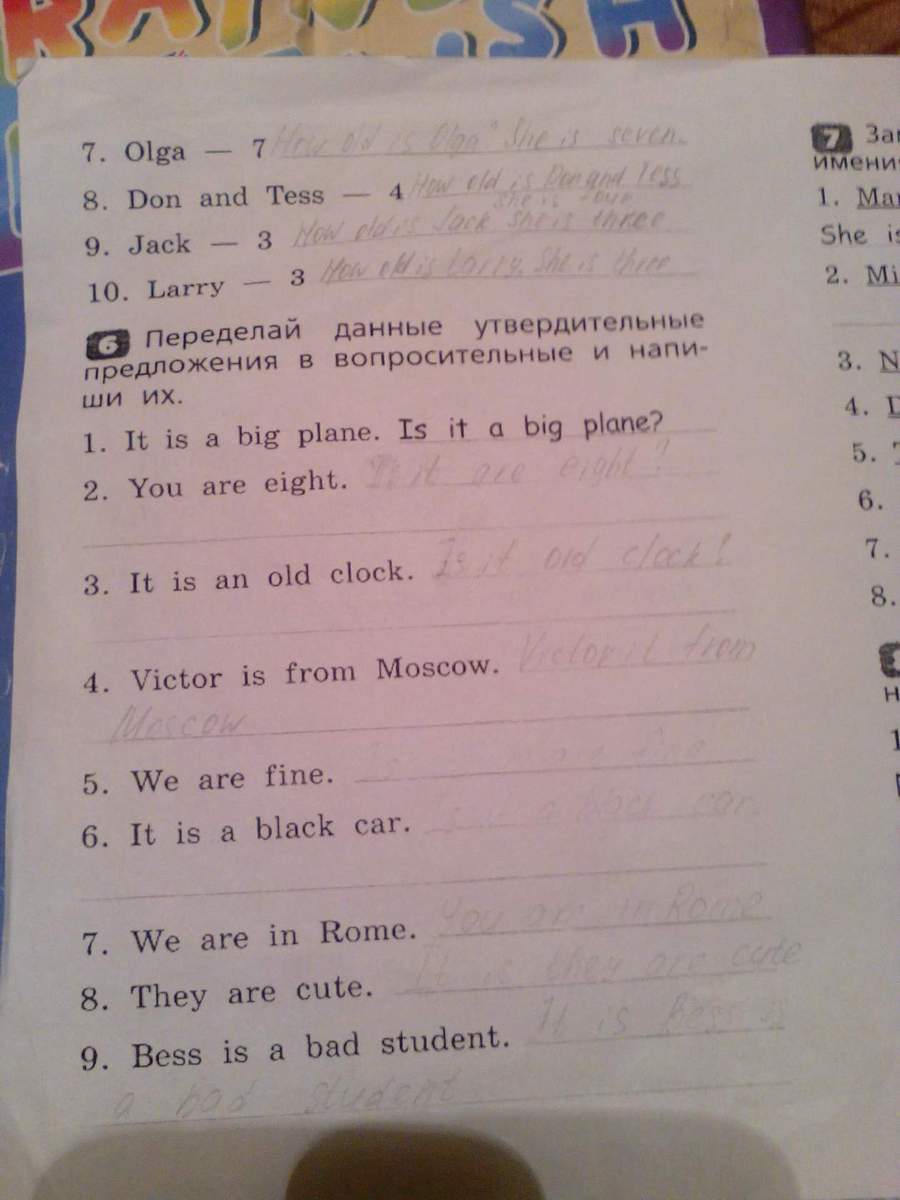 7. Olga — 7 How old is Olga? She is seven.
8. Don and Tess — 4 How old is Don and Tess
She is four
9. Jack — 3 How old is Jack She is three
10. Larry — 3 How old is Larry. She is three
6 Переделай данные утвердительные
предложения в вопросительные и напи-
ши их.
1. It is a big plane. Is it a big plane?
2. You are eight. Is it are eight?
3. It is an old clock. Is it old clock?
4. Victor is from Moscow. Victor it from
Moscow
5. We are fine. are fine
6. It is a black car. Is it a black car.
7. We are in Rome. You are in Rome
8. They are cute. It is they are cute
9. Bess is a bad student. It is Bess is
a bad student
7
имени
1.
She is
2. Mi
3. N
4.
5.
6.
7.
8.